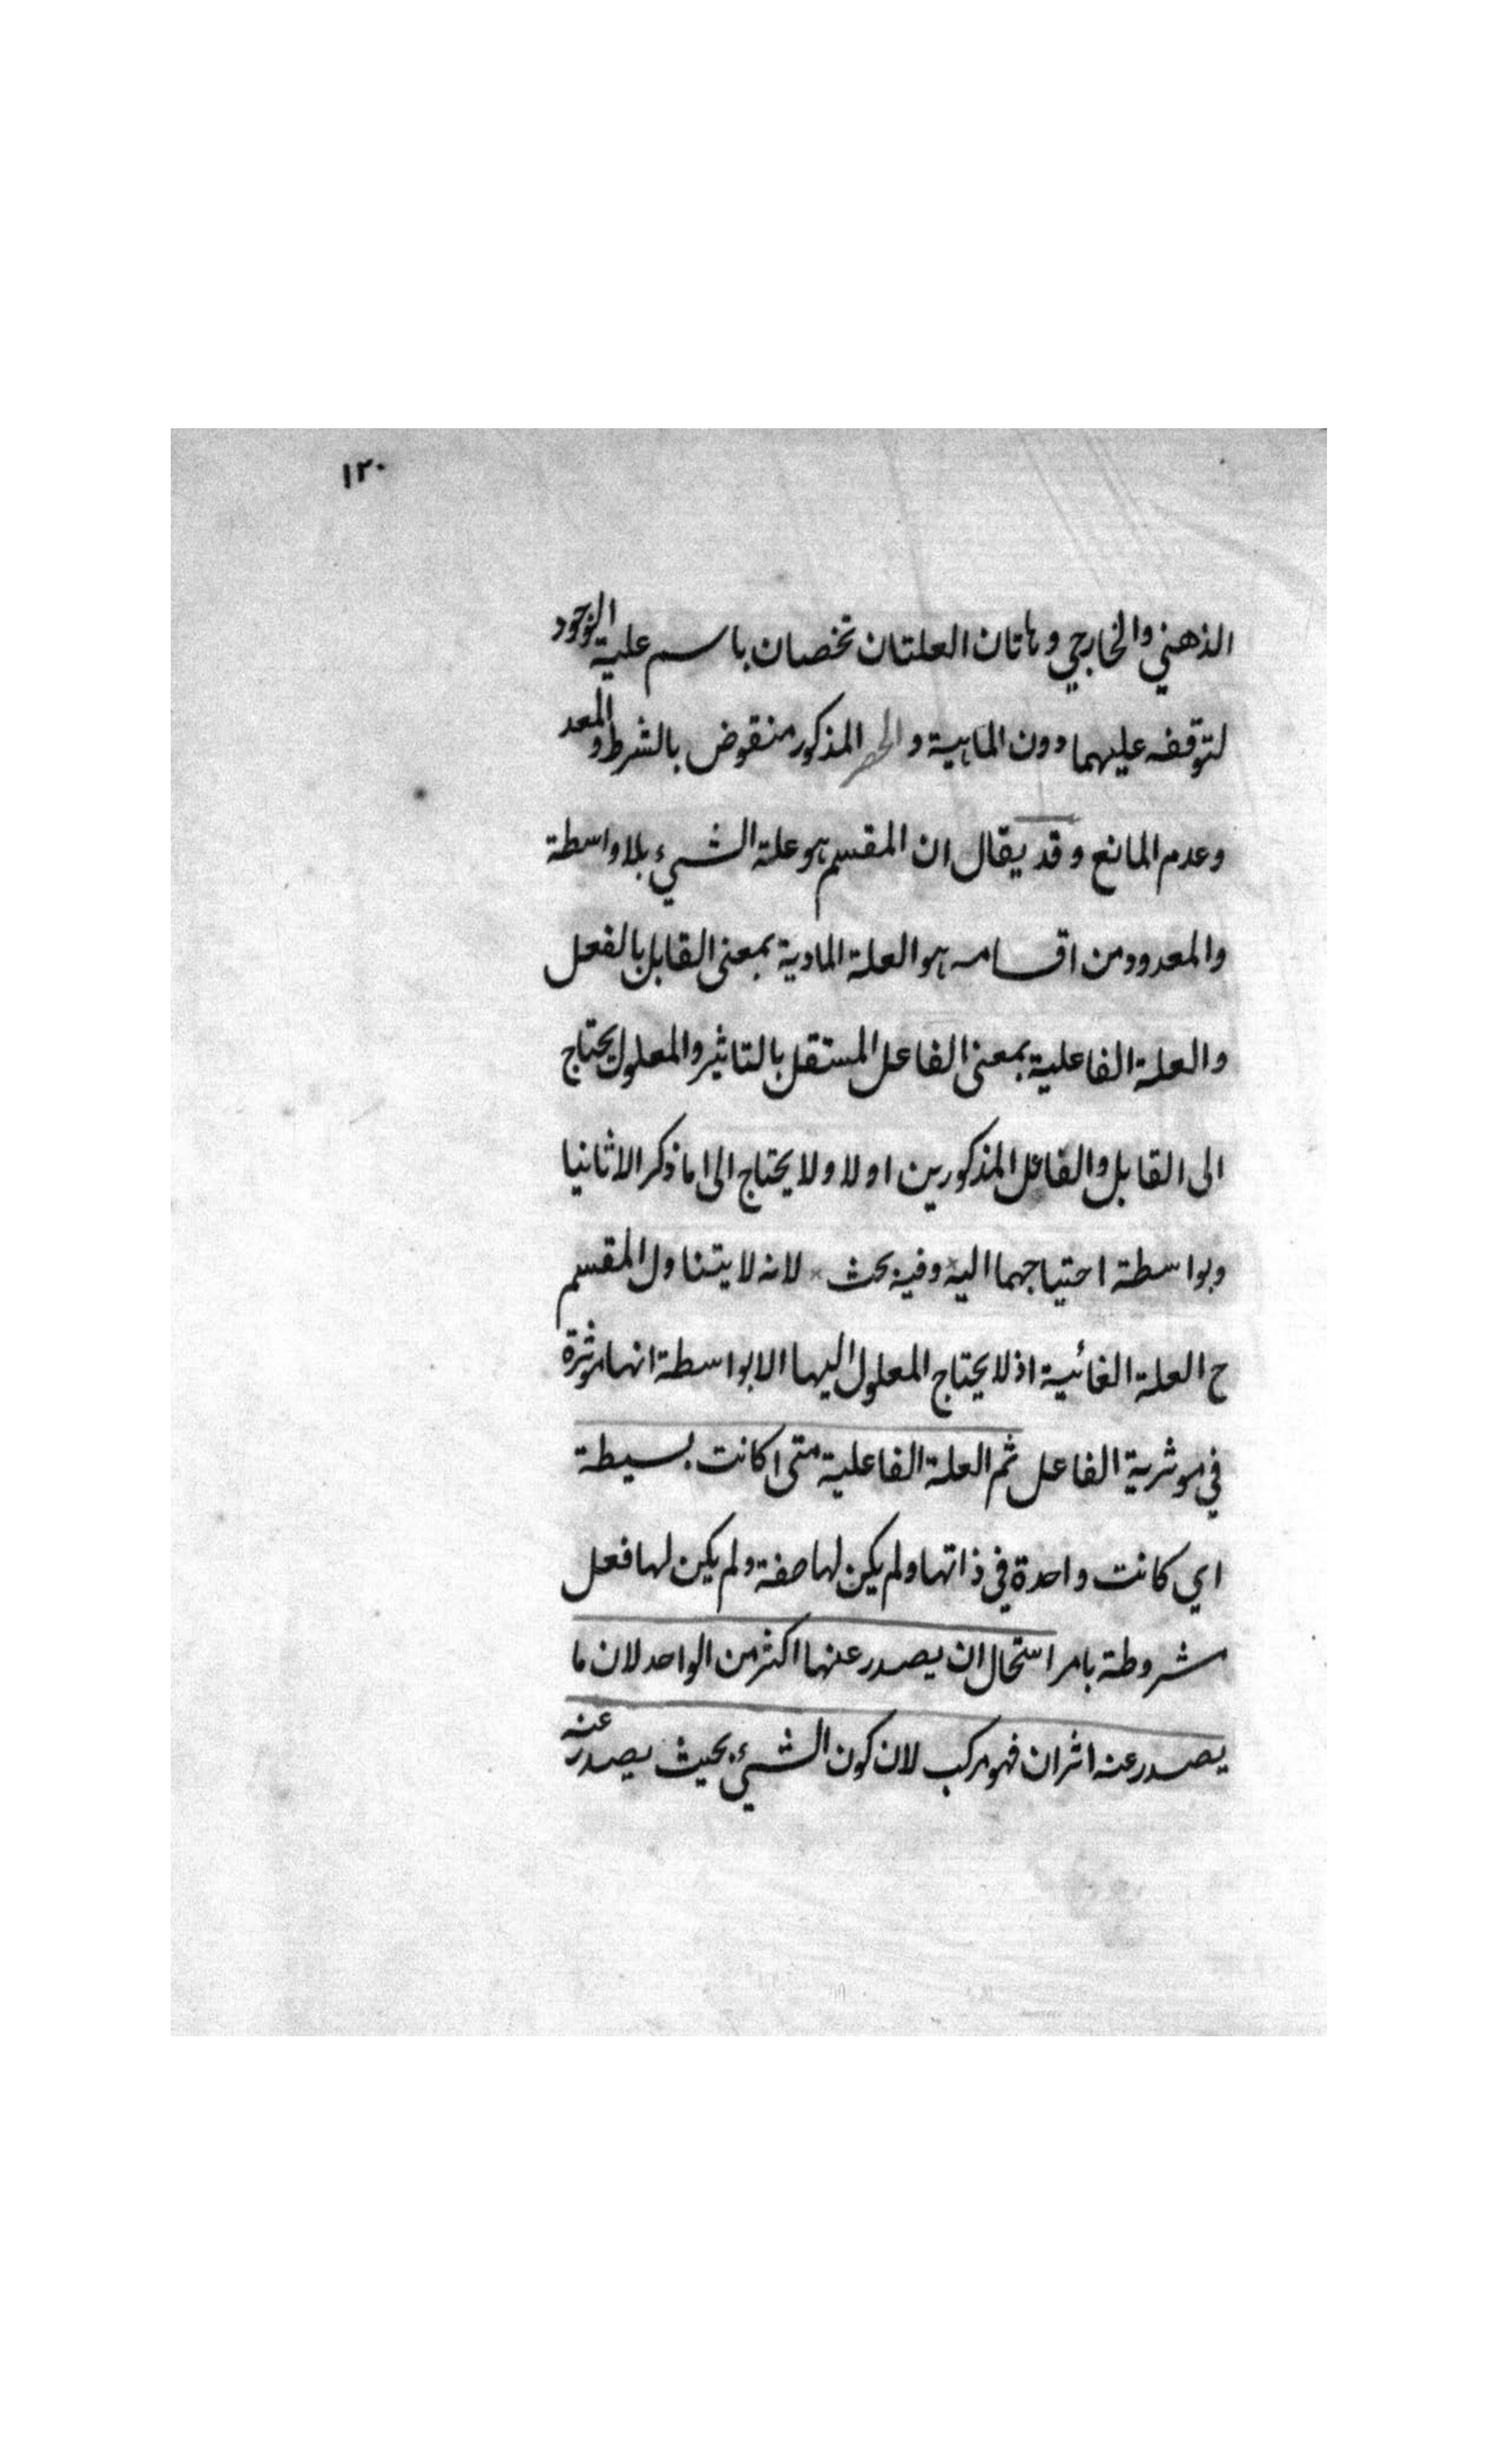 ١٢٠
الذهني والخارجي وهاتان العلتان تخصان باسم علية الوجود
لتوقفه عليهما دون الماهية والحصر المذكور منقوض بالشرط والمعد
وعدم المانع وقد يقال ان المقسم هو علة الشيء بلا واسطة
والمعدود من اقسامه هو العلة المادية بمعنى القابل بالفعل
والعلة الفاعلية بمعنى الفاعل المستقل بالتاثير والمعلول يحتاج
الى القابل والفاعل المذكورين اولا ولا يحتاج الى ما ذكر الا ثانيا
وبواسطة احتياجهما اليه وفيه بحث لانه لا يتناول المقسم
ح العلة الغائية اذ لا يحتاج المعلول اليها الا بواسطة انها موثرة
في موثرية الفاعل ثم العلة الفاعلية متى كانت بسيطة
اي كانت واحدة في ذاتها ولم يكن لها صفة ولم يكن لها فعل
مشروطة بامر استحال ان يصدر عنها اكثر من الواحد لان ما
يصدر عنه اثران فهو مركب لان كون الشيء بحيث يصدر عنه